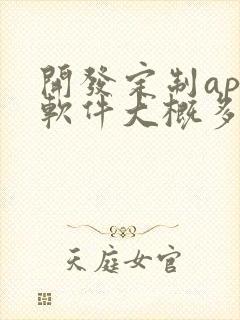 開發定制ap
軟件大概多
天庭女官